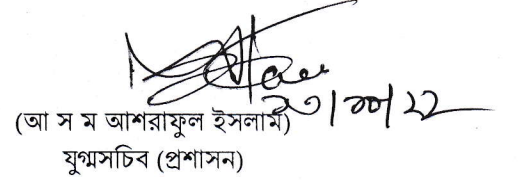 (আ স ম আশরাফুল ইসলাম)
যুগ্মসচিব (প্রশাসন)